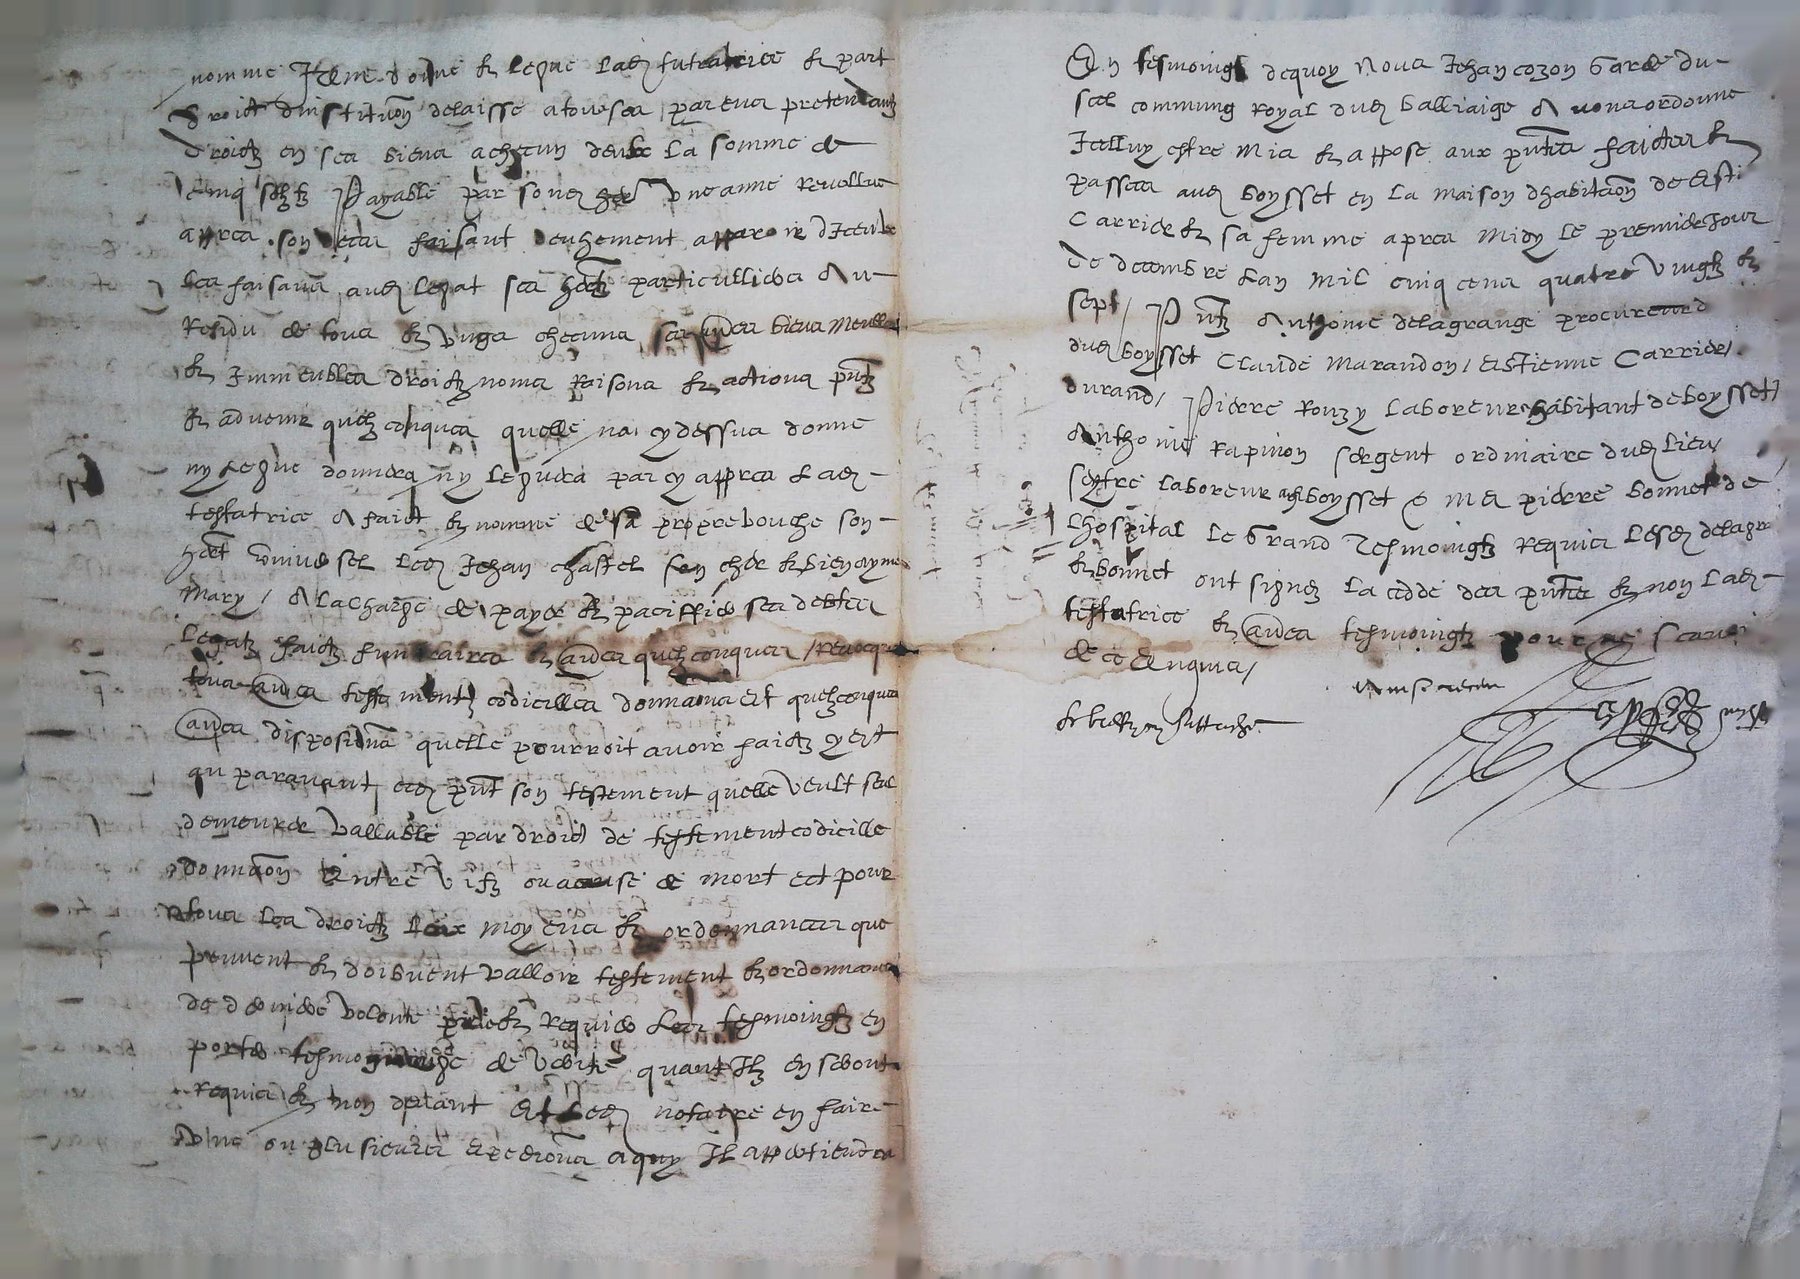 nomme Item donne & legue lad testatrice & part
droict dinstitution delaisse a tous ses par eux pretendantz
droictz en ses biens a chacun deulx la somme de
cinq solz tz payable par son her une annee revollue
apres son deces faisant deuhement apparoir diceulx
les faisant aud legat ses hers particulliers & au
residu de tous & ungs checuns ses aures biens meubles
& Immeubles droictz noms raisons & actions pntz
& advenir quelzconques quelle na cy dessus donne
ny legue donnera ny leguera par cy appres lad
testatrice a faict & nomme de sa propre bouche son
hert universel led Jehan chastel son cher & bien ayme
mary / a la charge de payer & paciffier ses debtes
legatz faictz funeraires & aures quelzconques / revocque
tous aures testamentz codicilles donnaons et quelzconques
aures disposiuons quelle pourroit avoir faictz
au paravant, led pnt son testement quelle veult seul
demeurer vallable par droict de testement codicille
donnaon Entre vifz ou a cause de mort et pour
tous les droictz loix moyens & ordonnances que
peuvent & doibvent valloir testement & ordonnance
de derniere volonte & requiers les tesmoingtz en
porter tesmoignaige de verite quant Ilz en seront
requis & non aultant Et led notaire en faire
Une ou plusieurs expedions a quy Il appertiendra
En tesmoingt dequoy Nous Jehan cozon garde du
scel commung Royal dud balliaige avons ordonne
Icelluy estre mis & appose aux pntes faictes &
passees aud boysset en la maison dhabitaon de Esti
Carrier & sa femme apres midy le premier Jour
de decembre lan mil cinq cens quatre vingtz &
sept / Pntz Anthoine delagrange procureur d
dud boysset Claude Marandon / Estienne Carrier /
durand / Pierre Rouzy laboreur habitant de boysset /
Anthoine Rapinon sergent ordinaire dud lieu /
seytre laboreur aud boysset & me pierre bonnet de
lhospital le grand Tesmoingtz requis lesd delagra
& bonnet ont signez la cedde des pntes & non lad
testatrice & aures tesmoingtz pour ne scavoi
de ce Enquis /